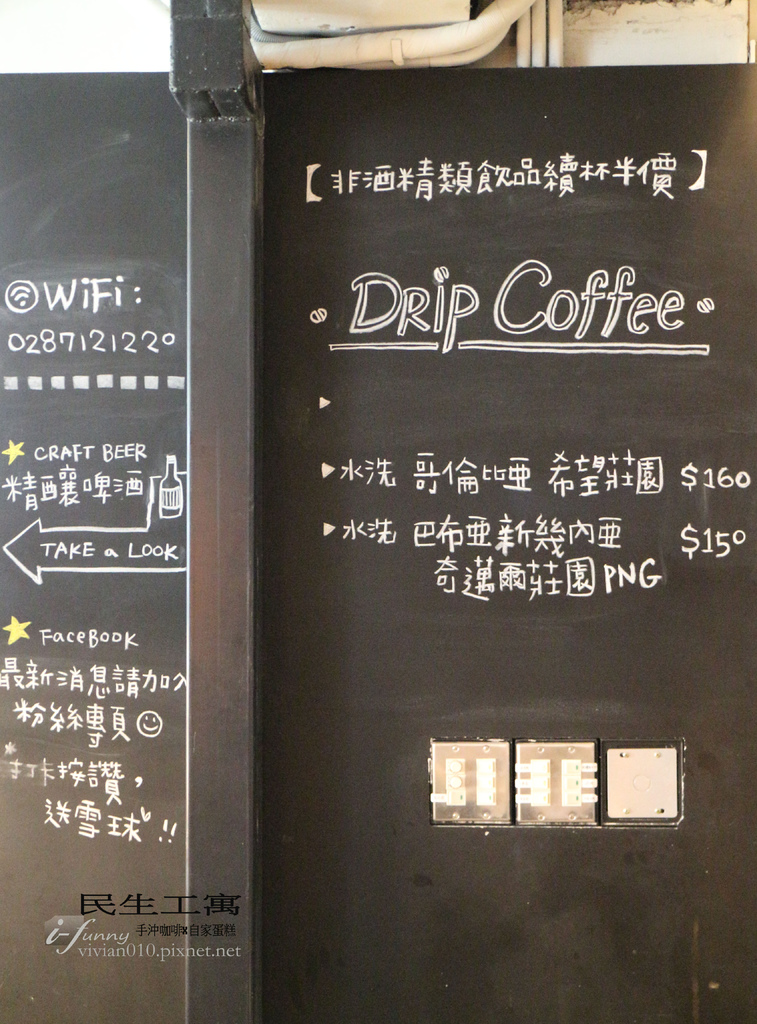 WiFi:
0287121220
CRAFT BEER
精釀啤酒
TAKE a LOOK
FaceBook
最新消息請加入
粉絲專頁
*打卡按讚,
送雪球!!
【非酒精類飲品續杯半價】
Drip Coffee
水洗 哥倫比亞 希望莊園 $160
水洗 巴布亞新幾內亞 $150
奇邁爾莊園 PNG
民生工寓
i-funny 手沖咖啡x自家蛋糕
vivian010.pixnet.net